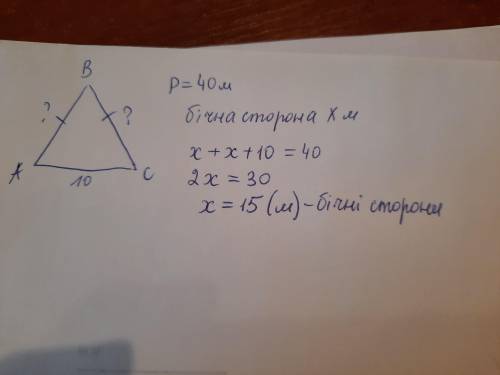 B
P = 40м
? ?
бічна сторона х м
x + x + 10 = 40
A 10 C
2x = 30
x = 15 (м) - бічні сторони